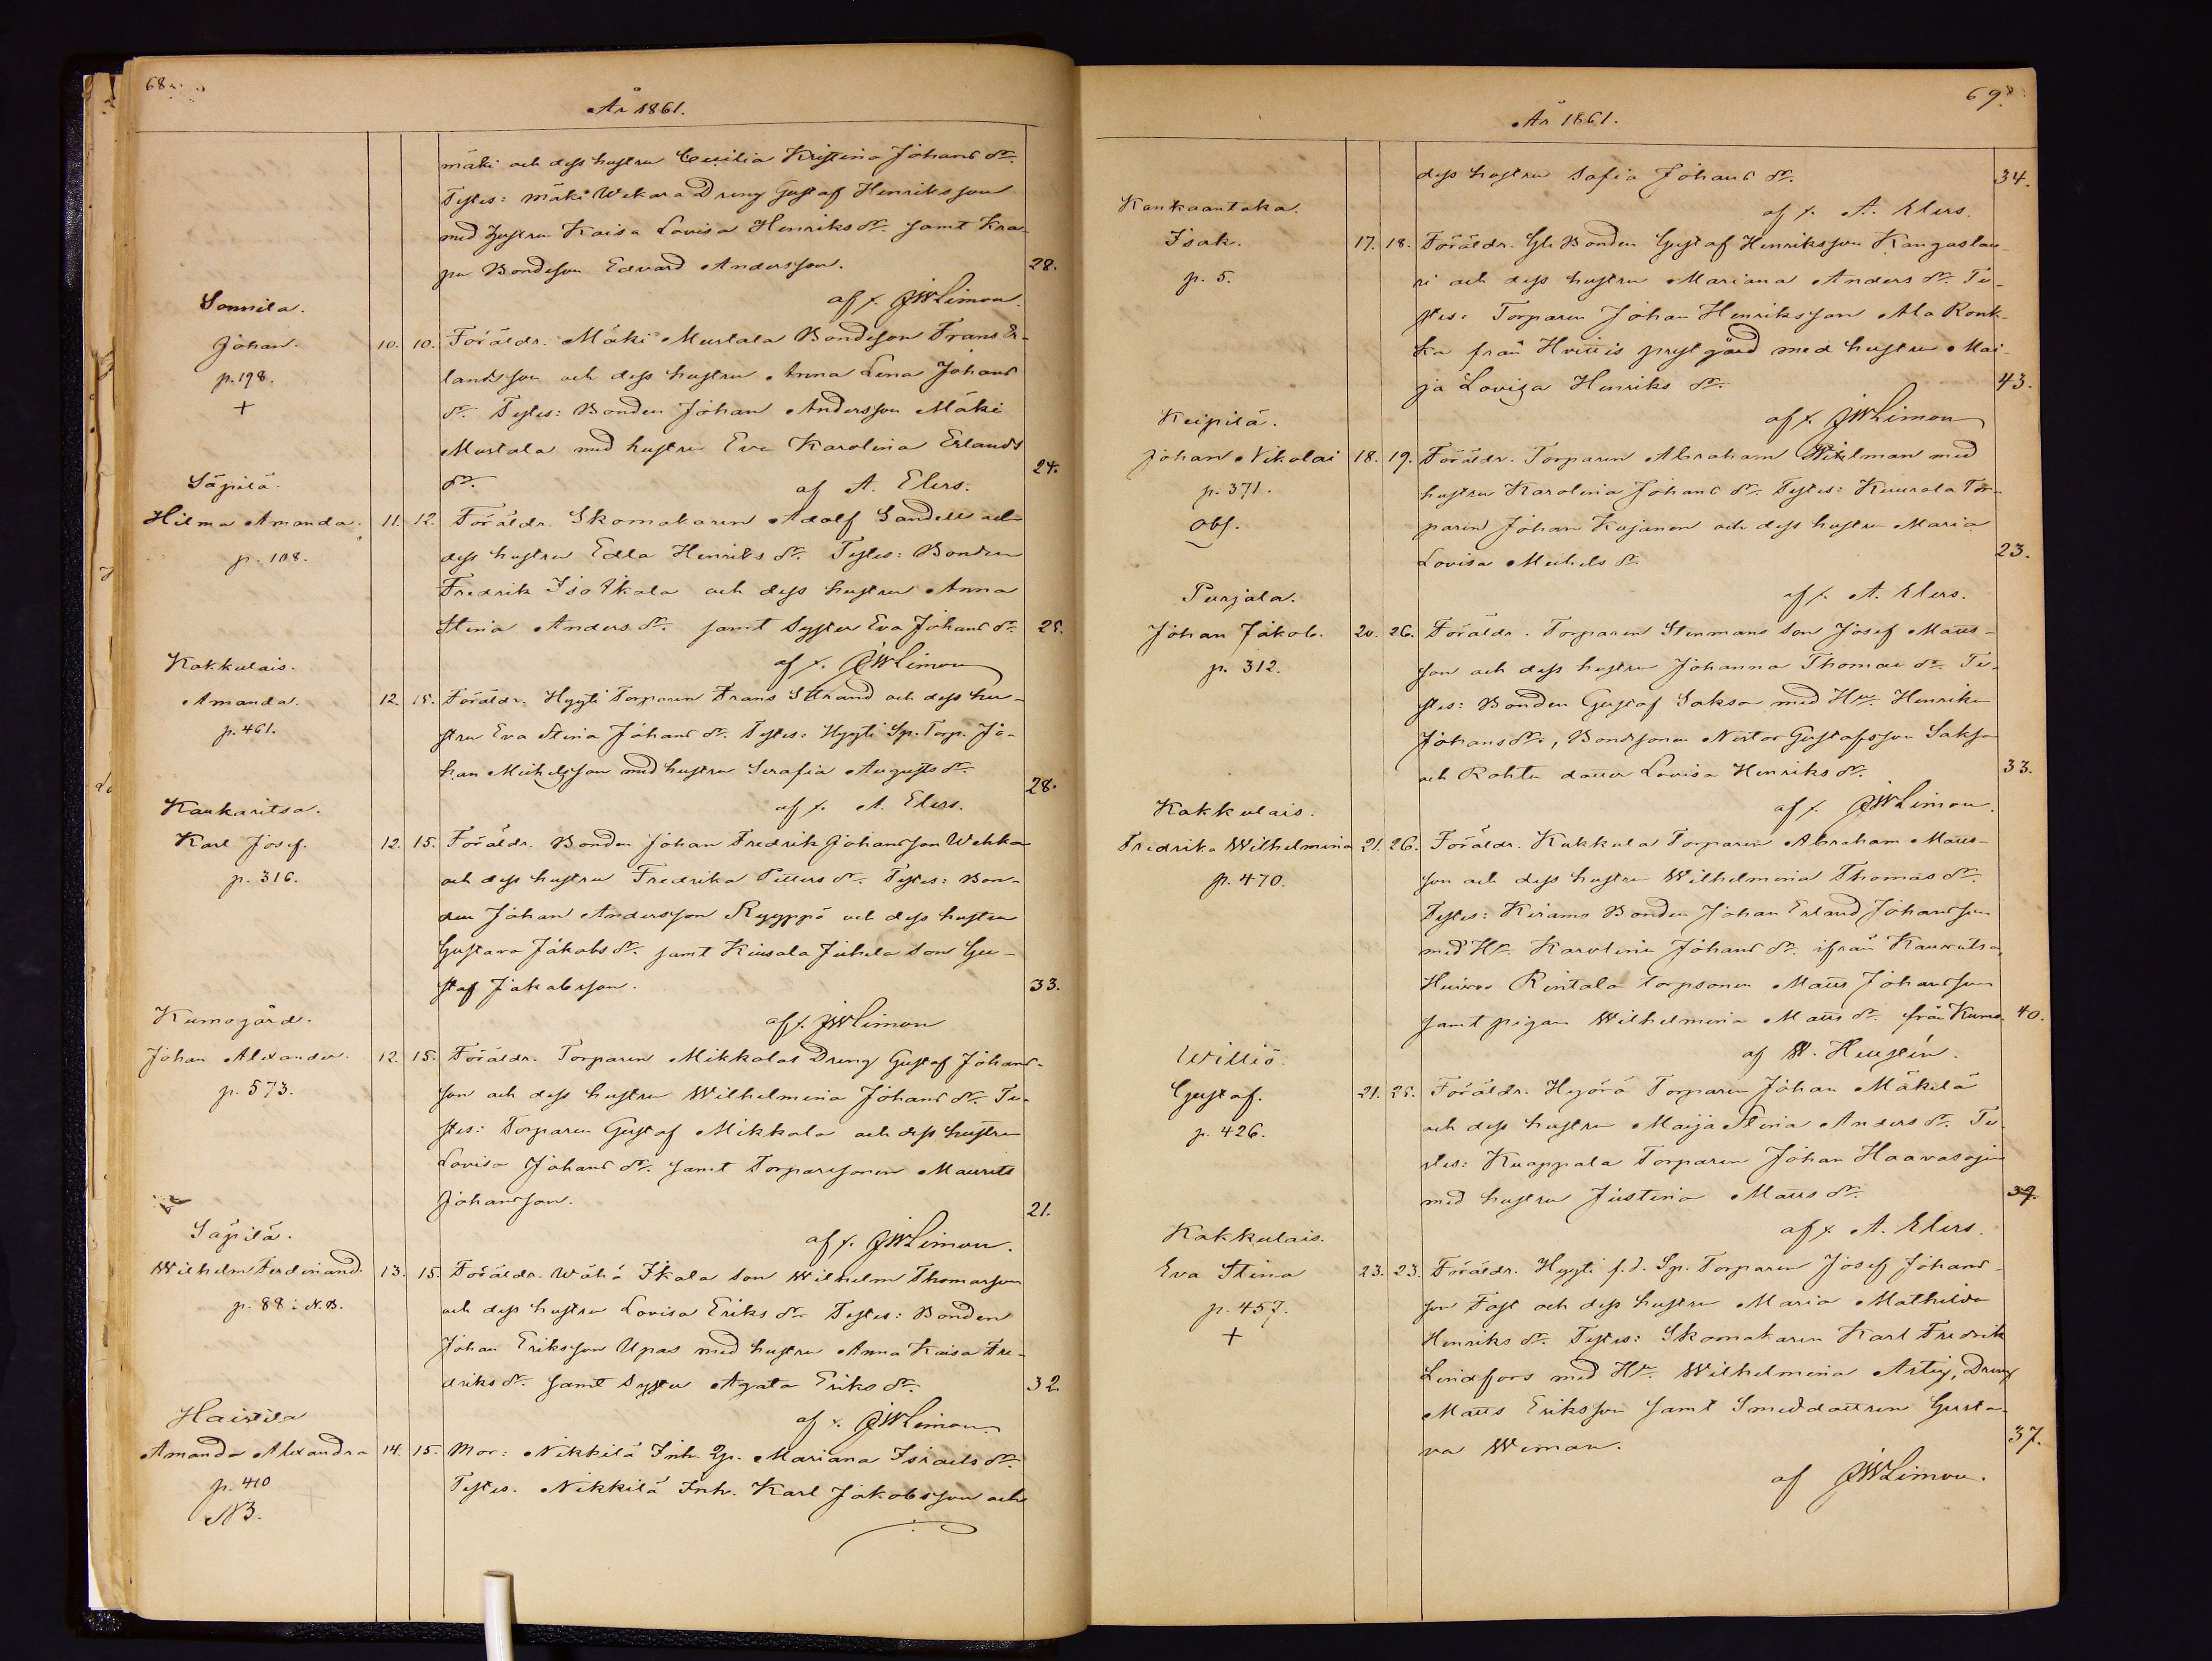 68.
År 1861.
mäki och dess hustru Cecilia Kristina Johans dr.
Testes: mäki Wekara Dreng Gustaf Henriksson
med hustru Kaisa Lovisa Henriks dr. samt Kra-
pu Bondeson Edvard Andersson. 28.
af f. JWLimon.
Sonnila.
Johan. 10. 10. Föräldr. Mäki Mustala Bondeson Frans Er-
p. 198. landsson och dess hustru Anna Lena Johans
+ dr. Testes: Bonden Johan Andersson Mäki
Mustala med hustru Eva Karolina Erlands
dr. 24.
Säpilä. af A. Elers.
Hilma Amanda. 11. 12. Föräldr. Skomakaren Adolf Sandell och
p. 108. dess hustru Edla Henriks dr. Testes: Bonden
Fredrik Iso Ikala och dess hustru Anna
Stina Anders dr. samt Syster Eva Johans dr. 25.
Kakkulais. af f. JWLimon
Amanda. 12. 15. Föräldr. Hyyti Torparen Frans Strand och dess hu-
p. 461. stru Eva Stina Johans dr. Testes: Hyyti Sp. Torp. Jo-
han Michelsson med hustru Serafia Augusts dr. 28.
Kaukaritsa. af f. A. Elers.
Karl Josef. 12. 15. Föräldr. Bonden Johan Fredrik Johansson Wehka
p. 316. och dess hustru Fredrika Petters dr. Testes: Bon-
den Johan Andersson Ryyppö och dess hustru
Gustava Jakobs dr. samt Kiusala Juhela Son Gu-
staf Jakobsson. 33.
Kumogård. af f. JWLimon
Johan Alexander. 12. 15. Föräldr. Torparen Mikkolas Dreng Gustaf Johans-
p. 573. son och dess hustru Wilhelmina Johans dr. Te-
stes: Torparen Gustaf Mikkola och dess hustru
Lovisa Johans dr. samt Torparesonen Maurits
Johansson. 21.
Säpilä. af f. JWLimon.
Wilhelm Ferdinand. 13. 15. Föräldr. Wähä Ikala Son Wilhelm Thomasson
p. 88: N.B. och dess hustru Lovisa Eriks dr. Testes: Bonden
Johan Eriksson Upas med hustru Anna Kaisa Fre-
driks dr. samt Syster Agata Eriks dr. 32.
Haistila af f. JWLimon
Amanda Alexandra 14. 15. Mor: Nikkilä Inh. Qp. Mariana Israels dr.
p. 410 Testes. Nikkilä Inh. Karl Jakobsson och
NB.
69.
År 1861.
dess hustru Sofia Johans dr. 34.
Kankaantaka. af f. A. Elers.
Isak. 17. 18. Föräldr. Gl. Bonden Gustaf Henriksson Kangaslau-
p. 5. ri och dess hustru Mariana Anders dr. Te-
stes: Torparen Johan Henriksson Ala Ronk-
ka från Hvittis prestgård med hustru Mai-
ja Lovisa Henriks dr. 43.
Keipilä. af f. JWLimon
Johan Nikolai 18. 19. Föräldr. Torparen Abraham Wikman med
p. 371. hustru Karolina Johans dr. Testes: Kuurola Tor-
Obs. paren Johan Kujanen och dess hustru Maria
Lovisa Michels dr. 23.
Purjala. af f. A. Elers.
Johan Jakob. 20. 26. Föräldr. Torparen Stenmans Son Josef Mats-
p. 312. son och dess hustru Johanna Thomas dr. Te-
stes: Bonden Gustaf Saksa med Hu. Henrika
Johans dr., Bondsonen Nestor Gustafsson Saksa
och Rohtu dotter Lovisa Henriks dr. 33.
Kakkulais. af f. JWLimon.
Fredrika Wilhelmina 21. 26. Föräldr. Kukkula Torparen Abraham Mats-
p. 470. son och dess hustru Wilhelmina Thomas dr.
Testes: Kiramo Bonden Johan Erland Johansson
med Hu. Karolina Johans dr. ifrån Kauvatsa,
Rintala torpsonen Mats Johansson
samt pigan Wilhelmina Mats dr. från Kumo. 40.
Williö. af W. Heurlin.
Gustaf. 21. 25. Föräldr. Hyörä Torparen Johan Mäkilä
p. 426. och dess hustru Maija Stina Anders dr. Te-
stes: Knappala Torparen Johan Haavasoja
med hustru Justina Mats dr. 39.
Kakkulais. af f. A. Elers.
Eva Stina 23. 23. Föräldr. Hyyti f.d. Sp. Torparen Josef Johans-
p. 457. son Fast och dess hustru Maria Mathilda
+ Henriks dr. Testes: Skomakaren Karl Fredrik
Lindfors med Hu. Wilhelmina Artig, Dreng
Mats Eriksson samt Smeddottren Gusta-
va Wiman. 37.
af JWLimon.